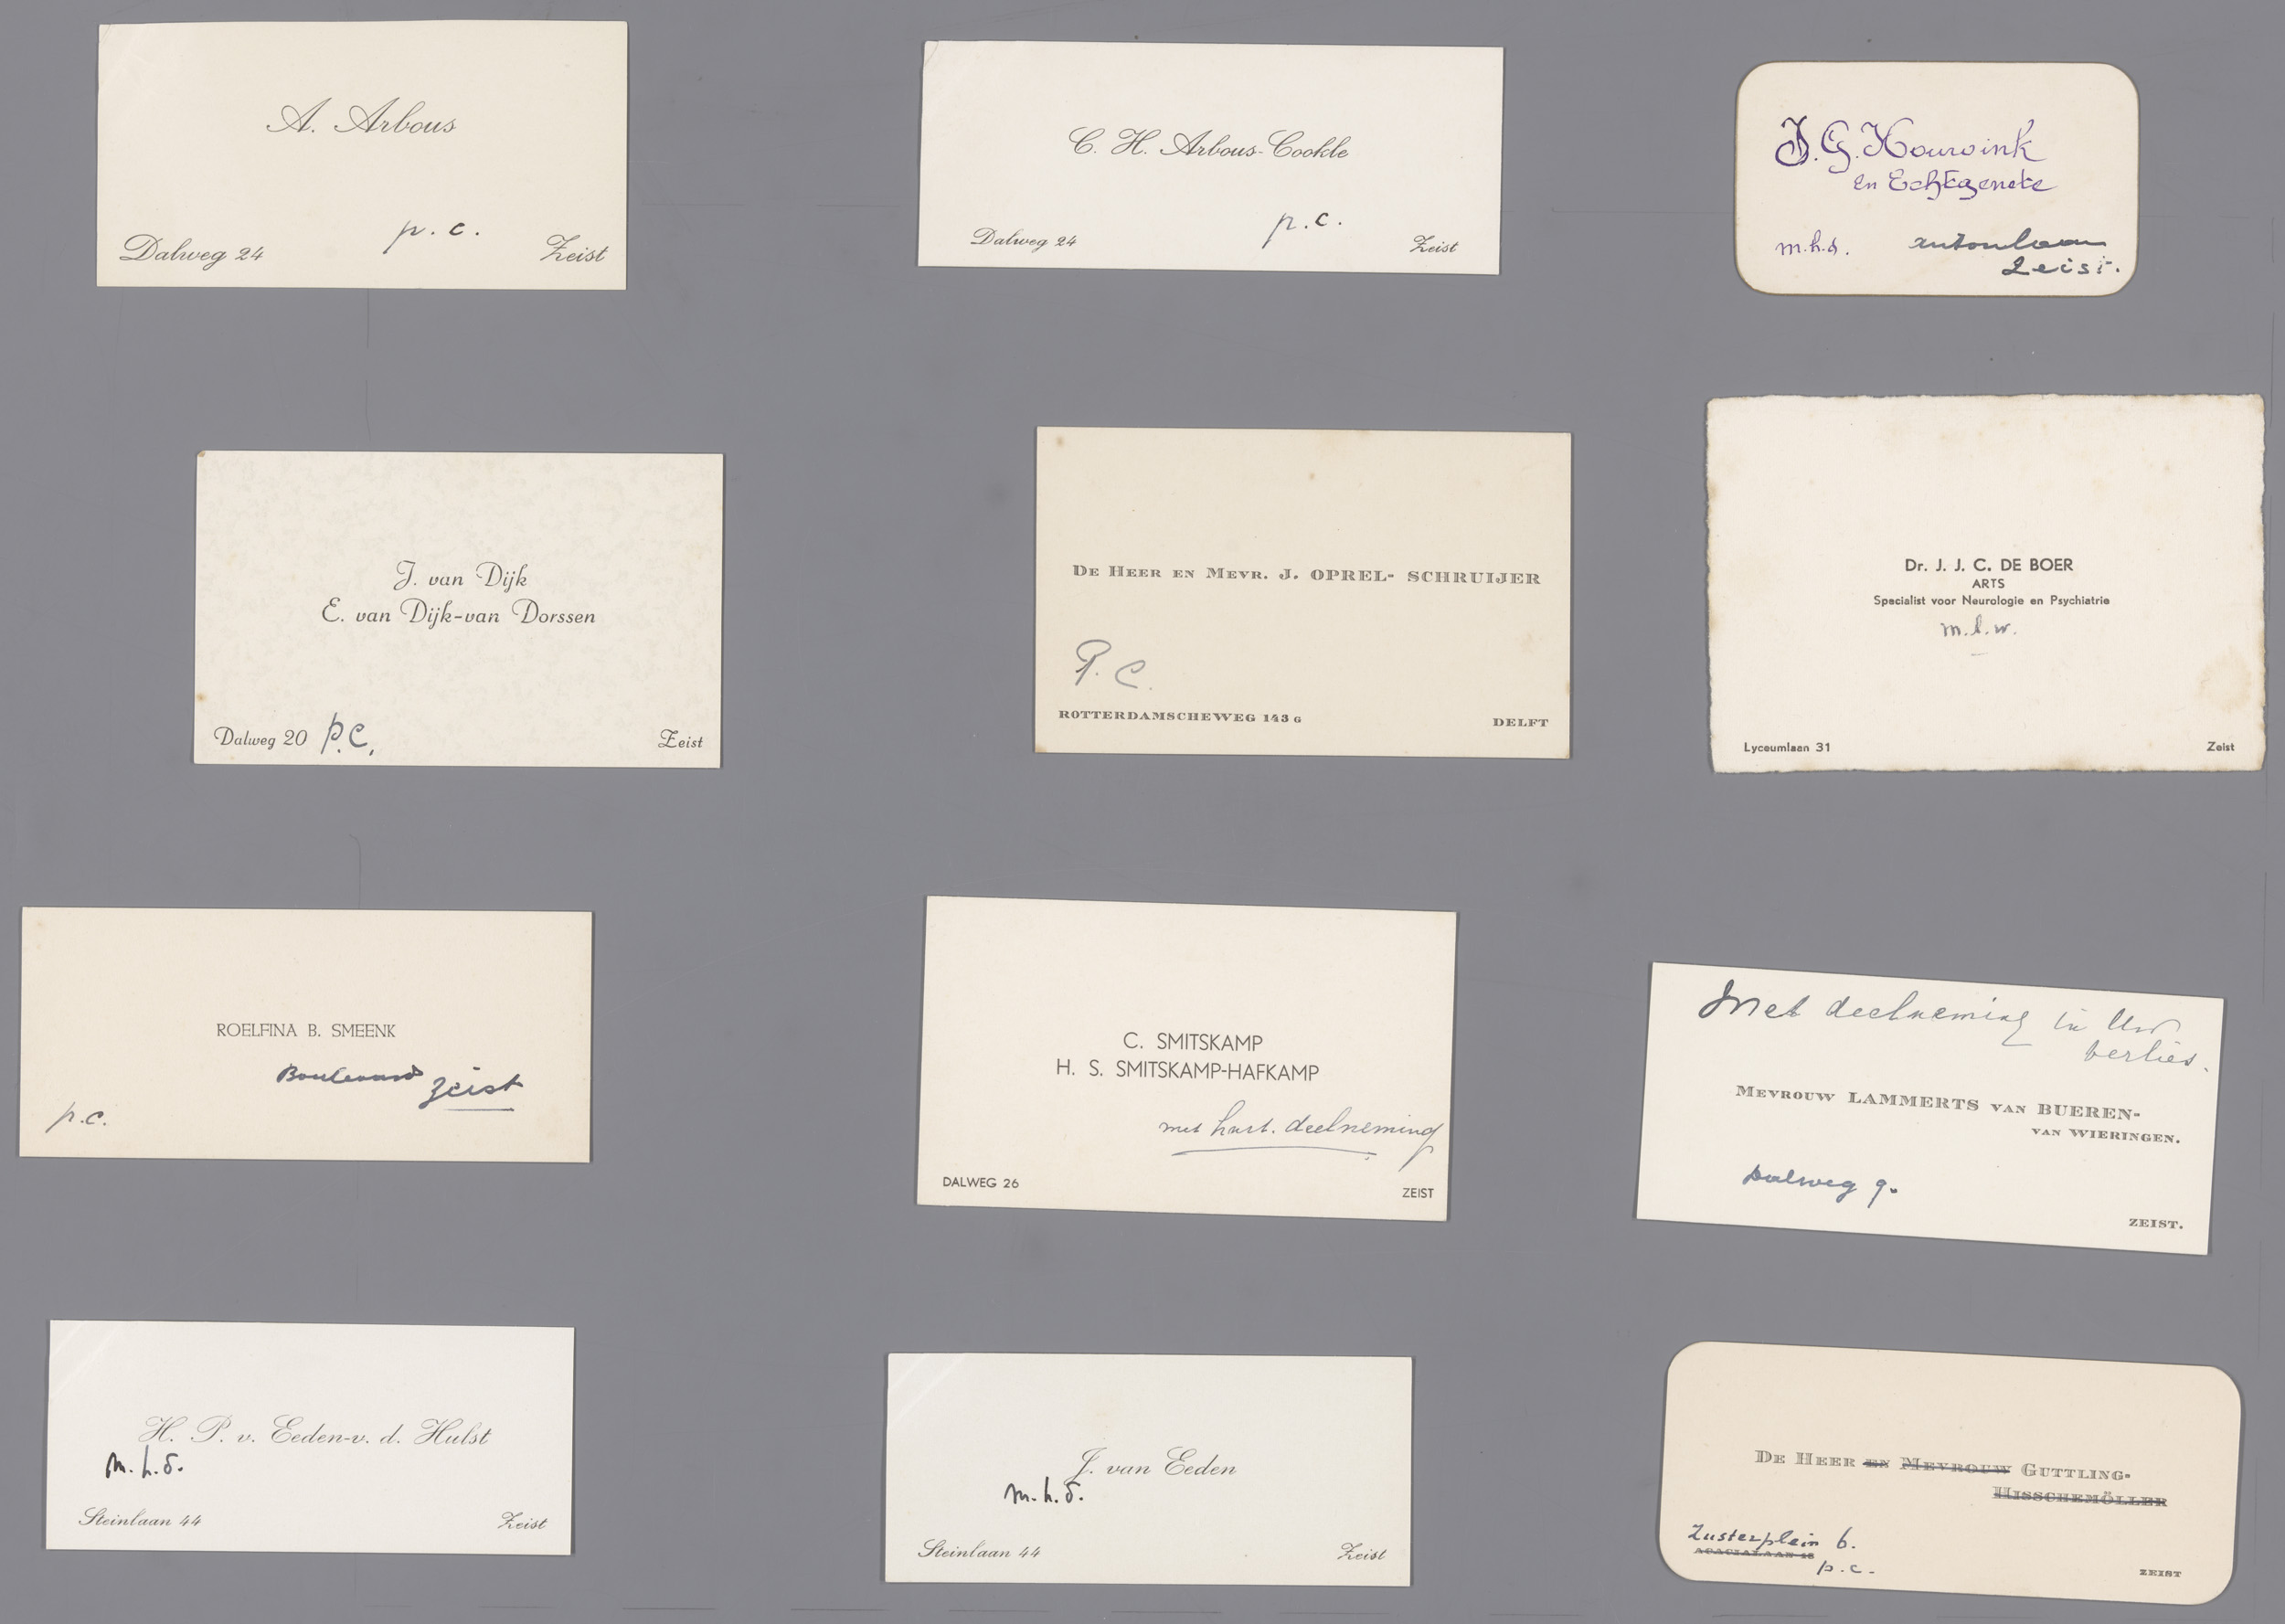 A. Arbous
p. c.
Dalweg 24 Zeist
C. H. Arbous-Cookle
p. c.
Dalweg 24 Zeist
J. G. Houwink
en Echtgenote
m.h.d. Antonlaan
Zeist.
J. van Dijk
E. van Dijk-van Dorssen
Dalweg 20 p.c. Zeist
De Heer en Mevr. J. OPREL- SCHRUIJER
P. C.
ROTTERDAMSCHEWEG 143 G DELFT
Dr. J. J. C. DE BOER
ARTS
Specialist voor Neurologie en Psychiatrie
m.l.w.
Lyceumlaan 31 Zeist
ROELFINA B. SMEENK
Boulevard Zeist
p.c.
C. SMITSKAMP
H. S. SMITSKAMP-HAFKAMP
met hart. deelneming
DALWEG 26 ZEIST
Met deelneming in Uw
verlies.
Mevrouw LAMMERTS van BUEREN-
van WIERINGEN.
Dalweg 9.
ZEIST.
H. P. v. Eeden-v. d. Hulst
m. h. d.
Steinlaan 44 Zeist
J. van Eeden
m. h. d.
Steinlaan 44 Zeist
De Heer en Mevrouw Guttling-
Hisschemöller
Zusterplein 6.
p.c.
ZEIST